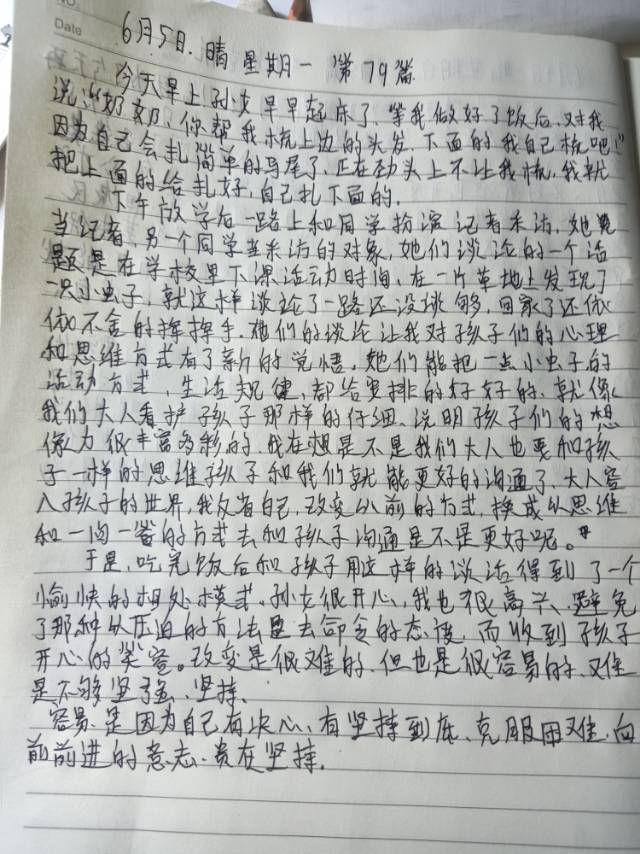 NO.
Date
6月5日. 晴 星期一 第79篇
今天早上孙女早早起床了, 等我做好了饭后, 对我
说:"奶奶, 你帮我梳上边的头发, 下面的我自己梳吧!"
因为自己会扎简单的马尾了, 正在劲头上不让我梳, 我就
把上面的给扎好, 自己扎下面的.
下午放学后一路上和同学扮演记者采访, 她是
当记者, 另一个同学当采访的对象, 她们谈论的一个话
题是在学校里下课活动时间, 在一片草地上发现了
一只小虫子, 就这样谈论了一路还没谈够, 回家了还依
依不舍的挥挥手. 她们的谈论让我对孩子们的心理
和思维方式有了新的觉悟. 她们能把一点小虫子的
活动方式, 生活规律, 都给安排的好好的, 就像
我们大人看护孩子那样的仔细. 说明孩子们的想
像力很丰富多彩的. 我在想是不是我们大人也要和孩
子一样的思维孩子和我们就能更好的沟通了. 大人容
入孩子的世界, 我反省自己, 改变以前的方式, 换成从思维
和一沟一省的方式去和孩子沟通是不是更好呢。
于是, 吃完饭后和孩子用这样的谈话得到了一个
愉快的相处模式. 孙女很开心, 我也很高兴. 避免
了那种以压迫的方法是去命令的态度, 而收到孩子
开心的笑容。改变是很难的, 但也是很容易的. 难
是不够坚强、坚持.
容易. 是因为自己有决心, 有坚持到底, 克服困难, 向
前前进的意志. 贵在坚持.